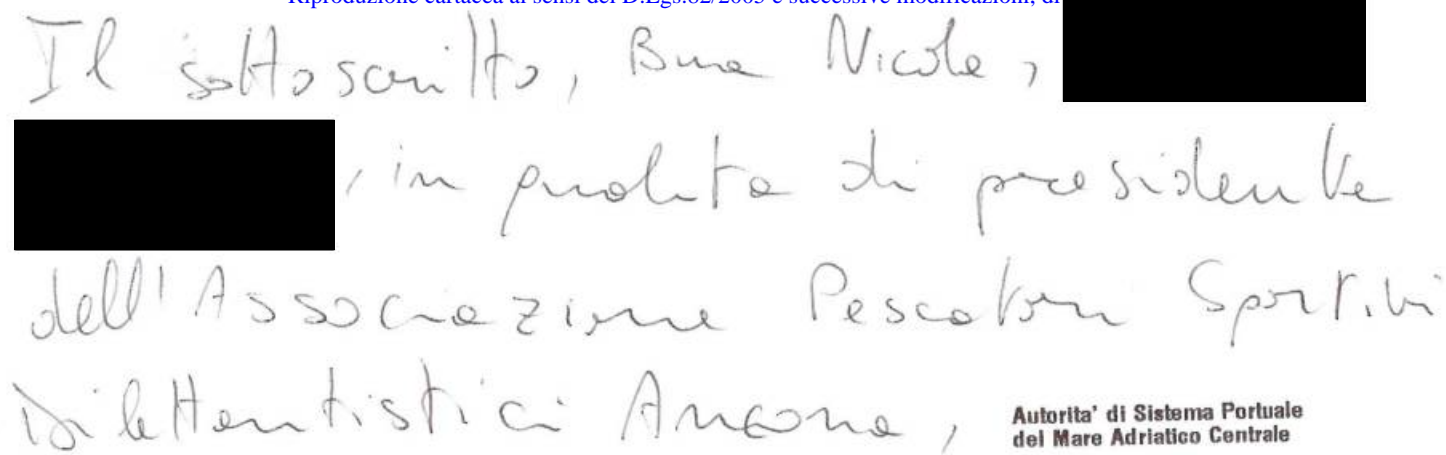 Riproduzione cartacea ai sensi del D.Lgs.82/2005 e successive modificazioni, di
Il sottoscritto, Bura Nicola,
, in qualità di presidente
dell'Associazione Pescatori Sportivi
Dilettantistici Ancona,
Autorita' di Sistema Portuale
del Mare Adriatico Centrale